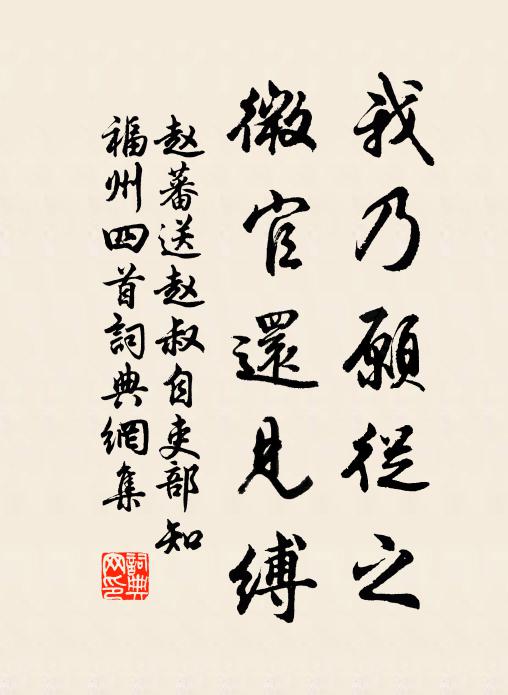 我乃願從之
微官還見縛
赵蕃送赵叔自吏部知
福州四首詞典網集
詞典
网印